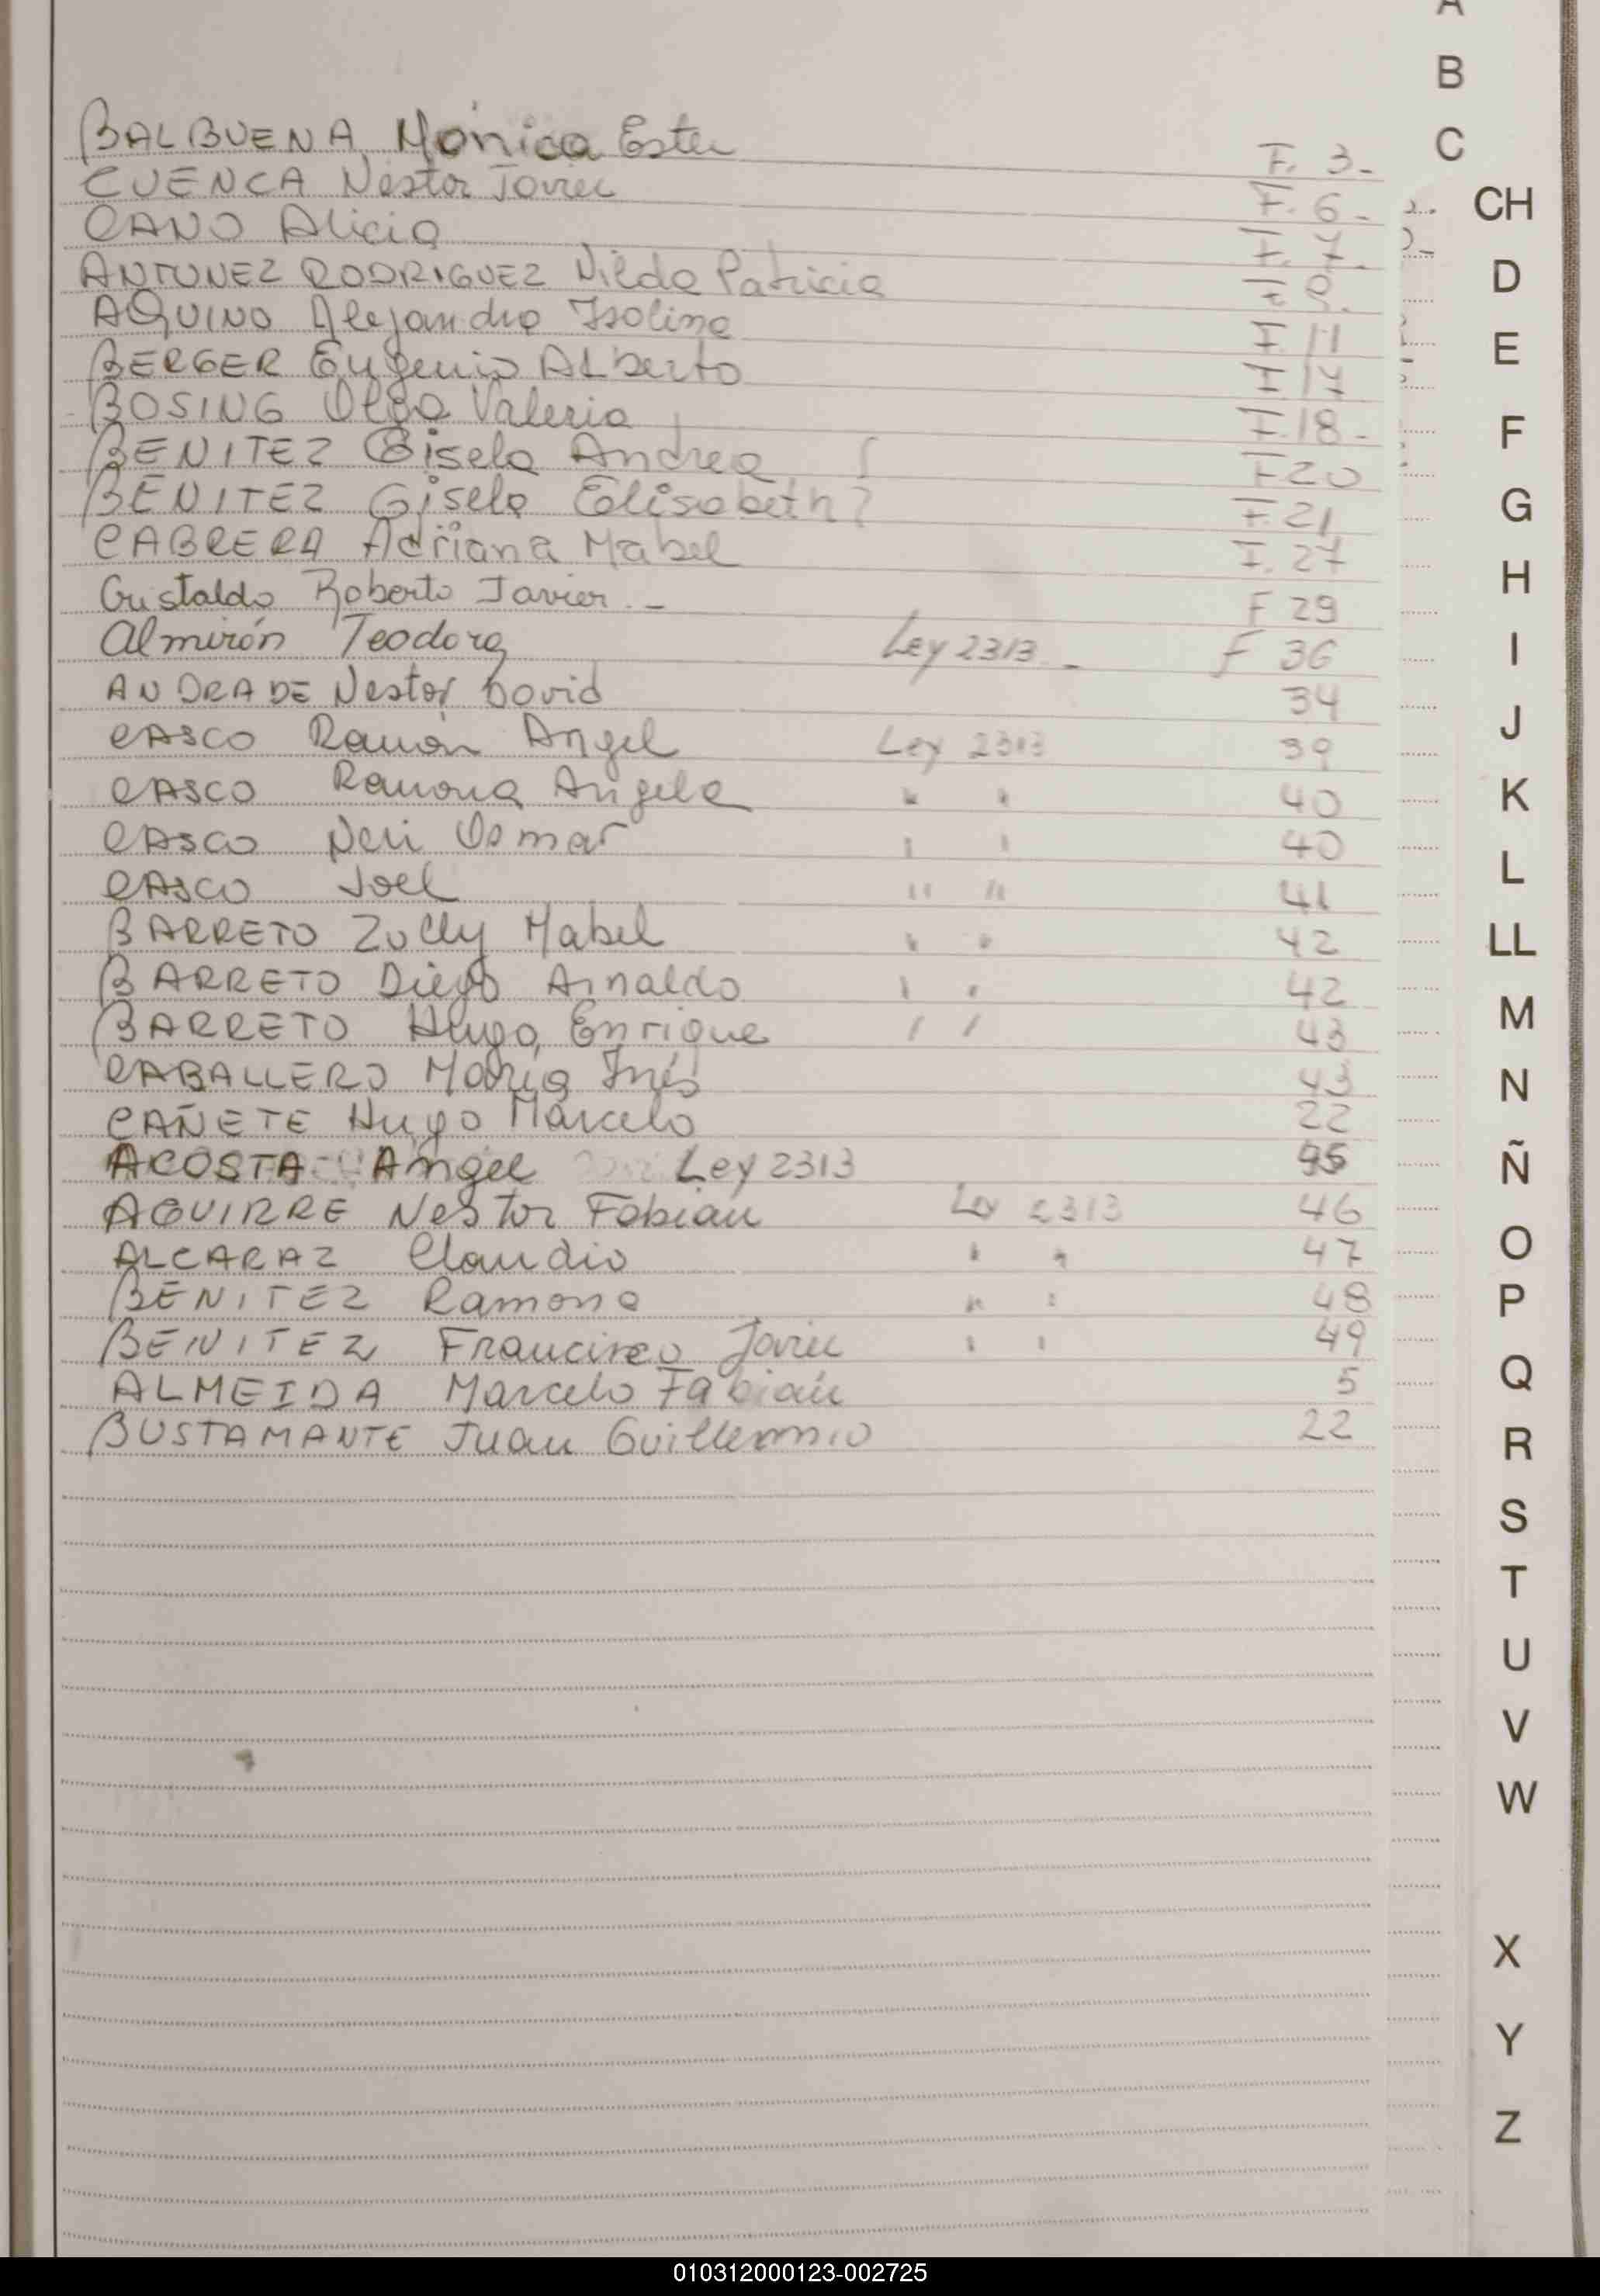 BALBUENA Mónica Ester F. 3.-
CUENCA Nestor Javier F. 6.-
CANO Alicia F. 7.
ANTUNEZ RODRIGUEZ Nilda Patricia F
AQUINO Alejandra Isolina F. 11
BERGER Eugenio Alberto F. 17
BOSING Olga Valeria F. 18-
BENITEZ Gisela Andrea F 20
BENITEZ Gisela Elisabeth F. 21
CABRERA Adriana Mabel F. 27
Cristaldo Roberto Javier.- F 29
Almirón Teodora Ley 2313- F 36
ANDRADE Nestor David 34
CASCO Ramón Angel Ley 2313 39
CASCO Ramona Angela " " 40
CASCO Neri Osmar " " 40
CASCO Joel " " 41
BARRETO Zully Mabel " " 42
BARRETO Diego Arnaldo " " 42
BARRETO Hugo Enrique " " 43
CABALLERO María Inés 43
CAÑETE Hugo Marcelo 22
ACOSTA Angel Ley 2313
AGUIRRE Nestor Fabian Ley 2313 46
ALCARAZ Claudio " " 47
BENITEZ Ramona " " 48
BENITEZ Francisco Javier " " 49
ALMEIDA Marcelo Fabián 5
BUSTAMANTE Juan Guillermo 22
A
B
C
CH
D
E
F
G
H
I
J
K
L
LL
M
N
Ñ
O
P
Q
R
S
T
U
V
W
X
Y
Z
010312000123-002725